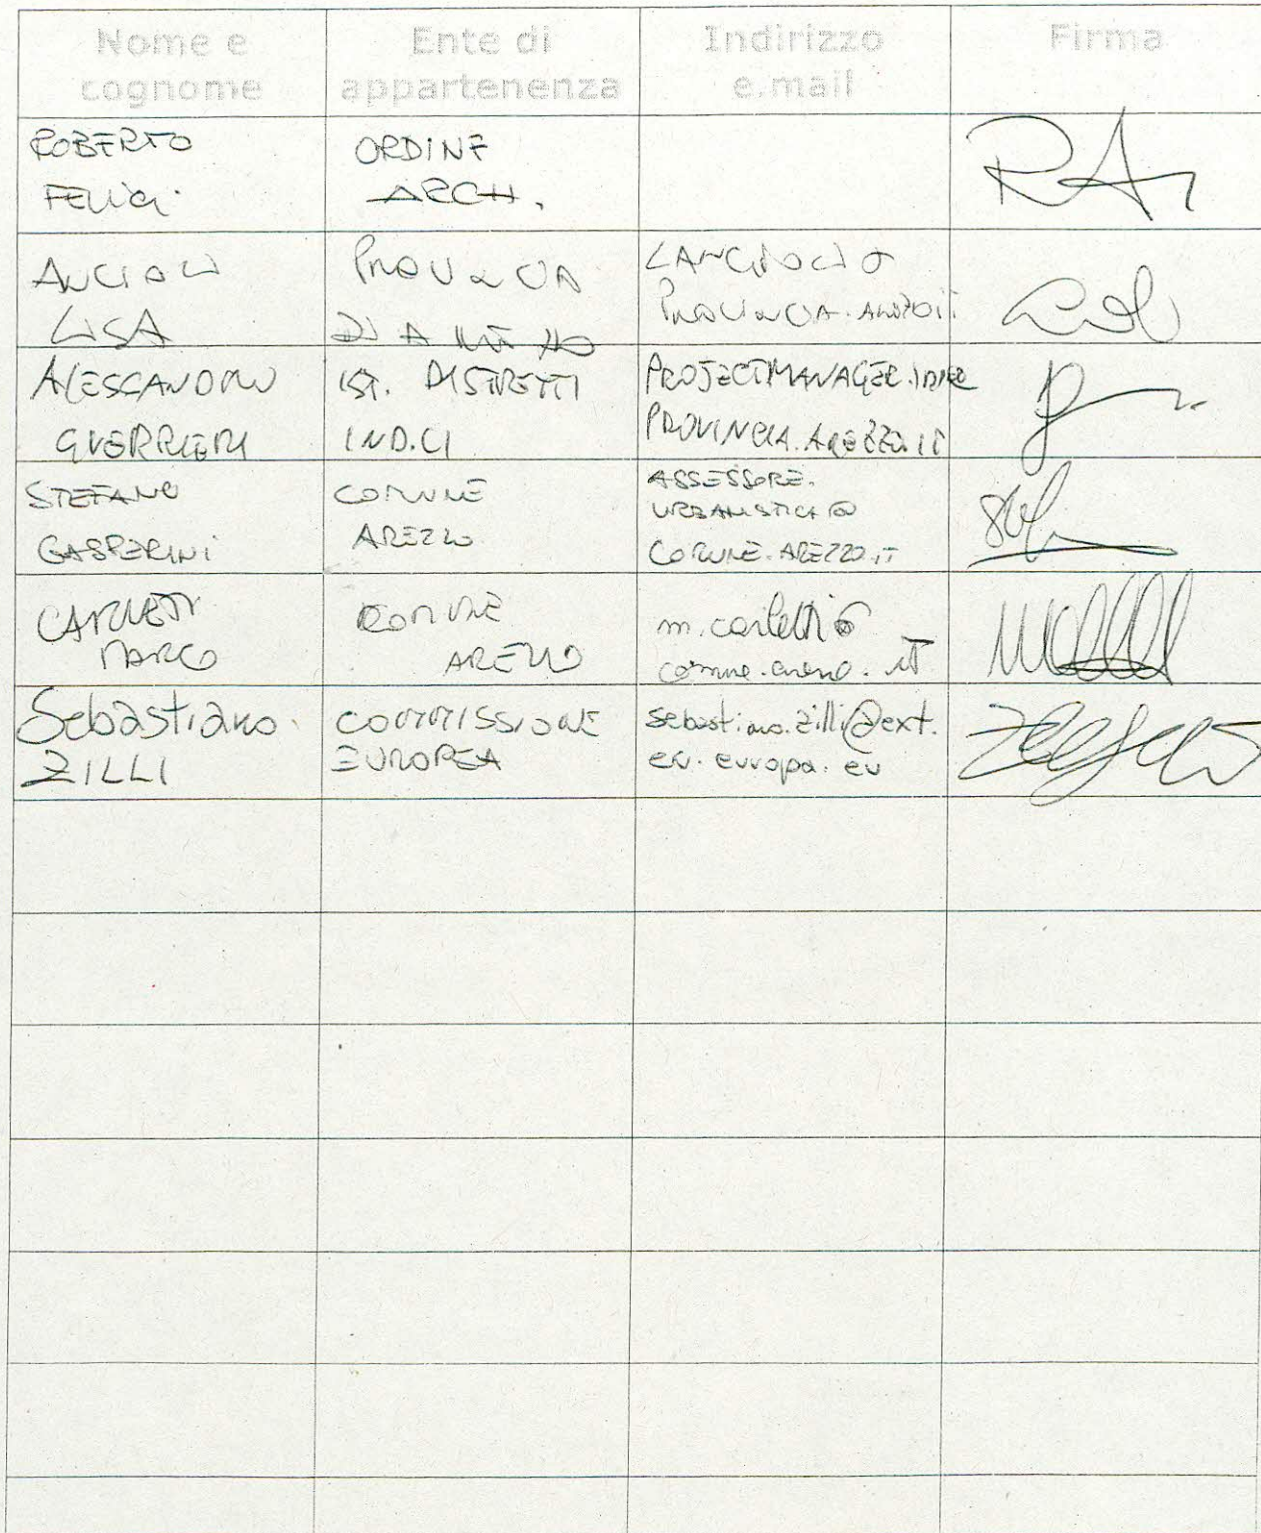 Nome e
cognome
Ente di
appartenenza
Indirizzo
e.mail
Firma
ROBERTO
FELICI
ORDINE
ARCH.
ANCIOLI
LISA
PROVINCIA
DI AREZZO
LANCIOLI@
PROVINCIA.AREZZO.IT
ALESSANDRO
GUERRIERI
IST. DISTRETTI
IND.LI
PROJECTMANAGER.
PROVINCIA.AREZZO.IT
STEFANO
GASPERINI
COMUNE
AREZZO
ASSESSORE.
URBANISTICA@
COMUNE.AREZZO.IT
CARLETTI
MARCO
COMUNE
AREZZO
m.carletti@
comune.arezzo.it
Sebastiano
ZILLI
COMMISSIONE
EUROPEA
sebastiano.zilli@ext.
ec.europa.eu